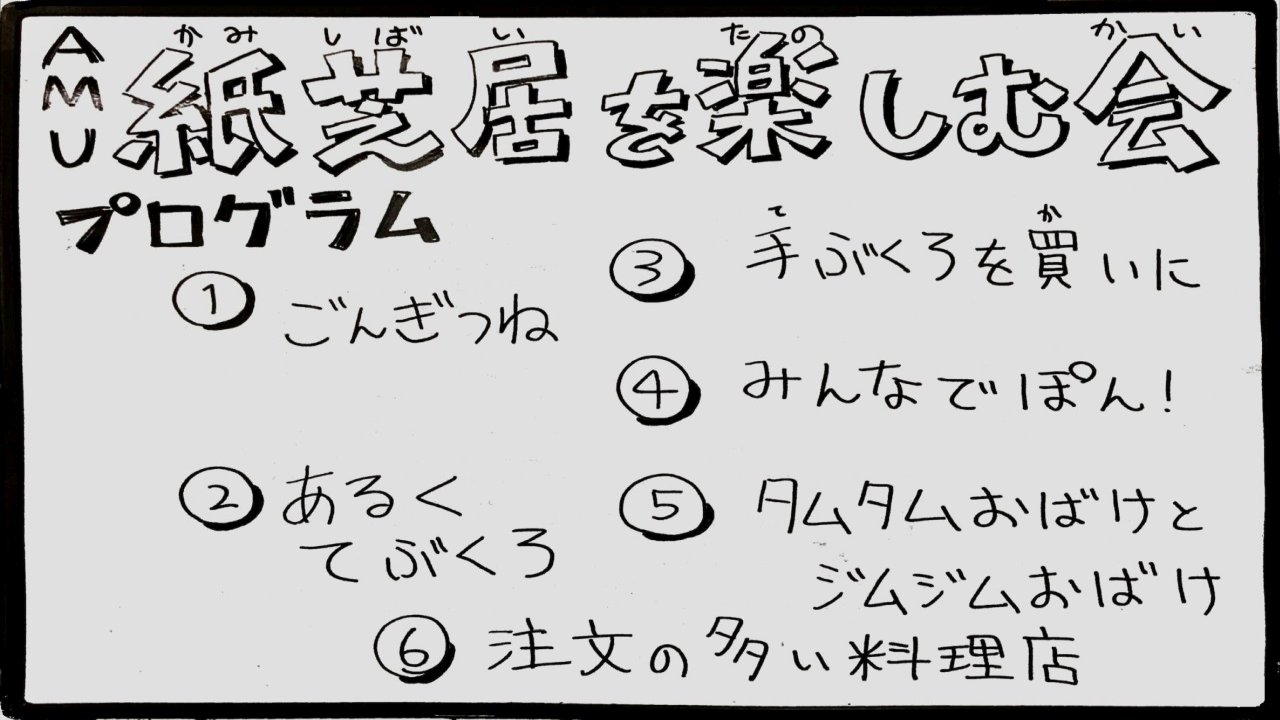 AMU 紙芝居を楽しむ会
かみしばい たの かい
プログラム
① ごんぎつね
② あるく
てぶくろ
③ 手ぶくろを買いに
て か
④ みんなでぽん!
⑤ タムタムおばけと
ジムジムおばけ
⑥ 注文の多い料理店